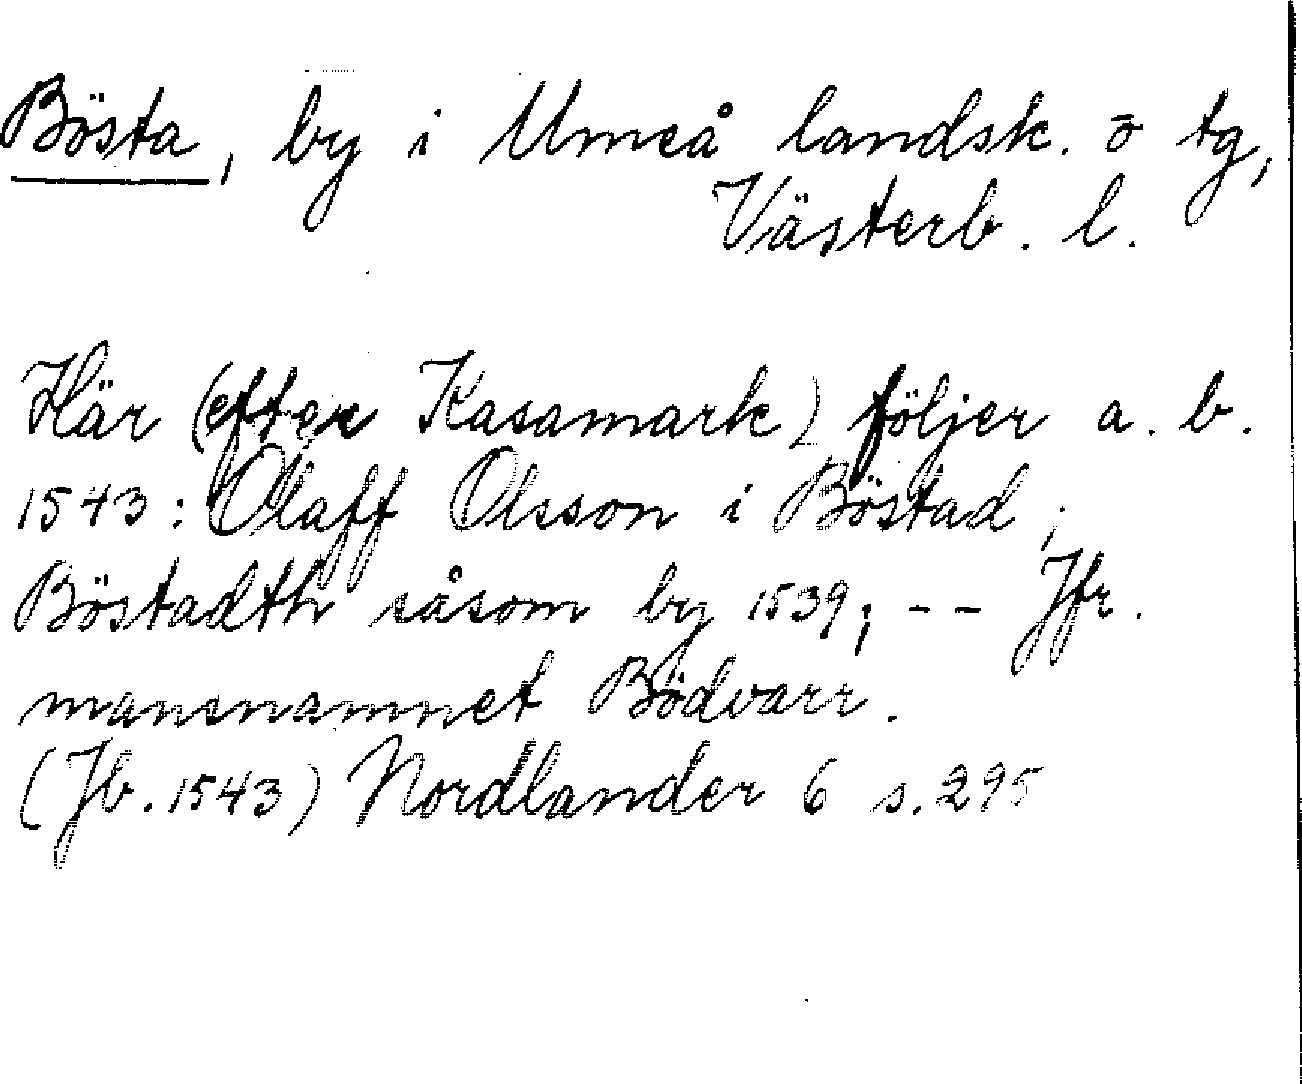 Bösta, by i Umeå landsk. o tg,
Västerb. l.
Här (efter Kasamark) följer a. b.
1543: Olaff Olsson i Böstad;
Böstadth såsom by 1539; -- Jfr.
mansnamnet Bödvarr.
(Jb. 1543) Nordlander 6 s. 295